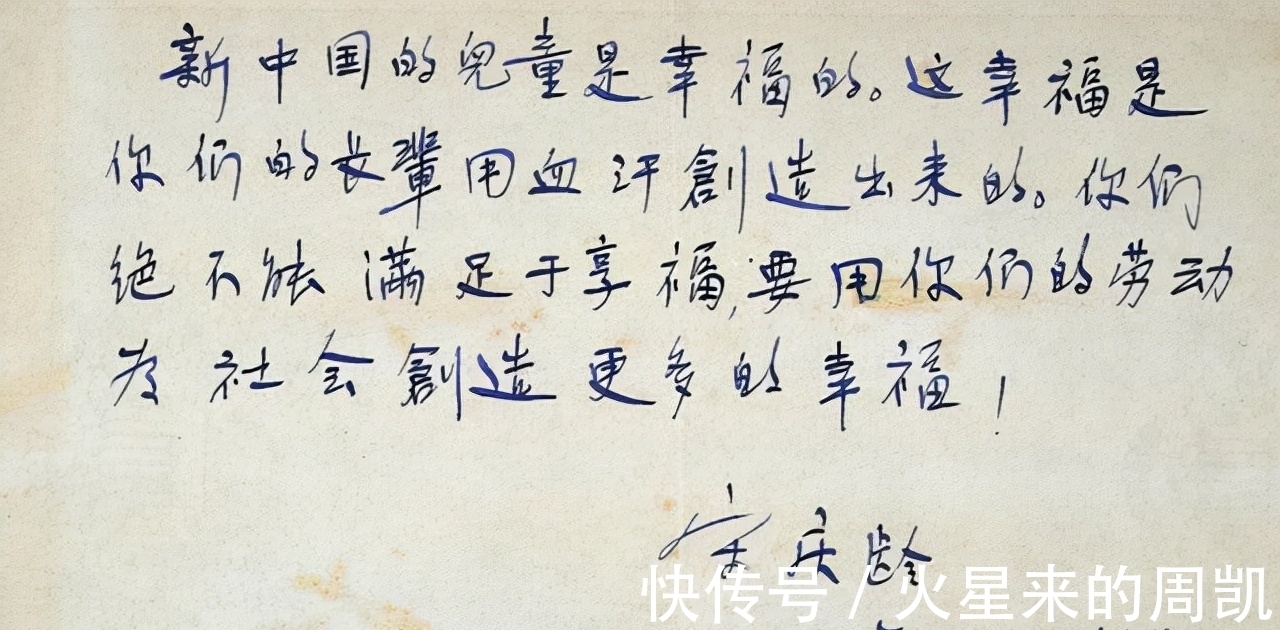 新中国的兒童是幸福的。这幸福是
你们的长輩用血汗創造出来的。你们
绝不能满足于享福,要用你们的劳动
为社会創造更多的幸福!
宋庆龄
快传号 / 火星来的周凯